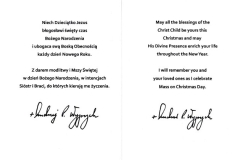 Niech Dzieciątko Jezus
błogosławi święty czas
Bożego Narodzenia
i ubogaca swą Boską Obecnością
każdy dzień Nowego Roku.
Z darem modlitwy i Mszy Świętej
w dzień Bożego Narodzenia, w intencjach
Sióstr i Braci, do których kieruję me życzenia.
May all the blessings of the
Christ Child be yours this
Christmas and may
His Divine Presence enrich your life
throughout the New Year.
I will remember you and
your loved ones as I celebrate
Mass on Christmas Day.